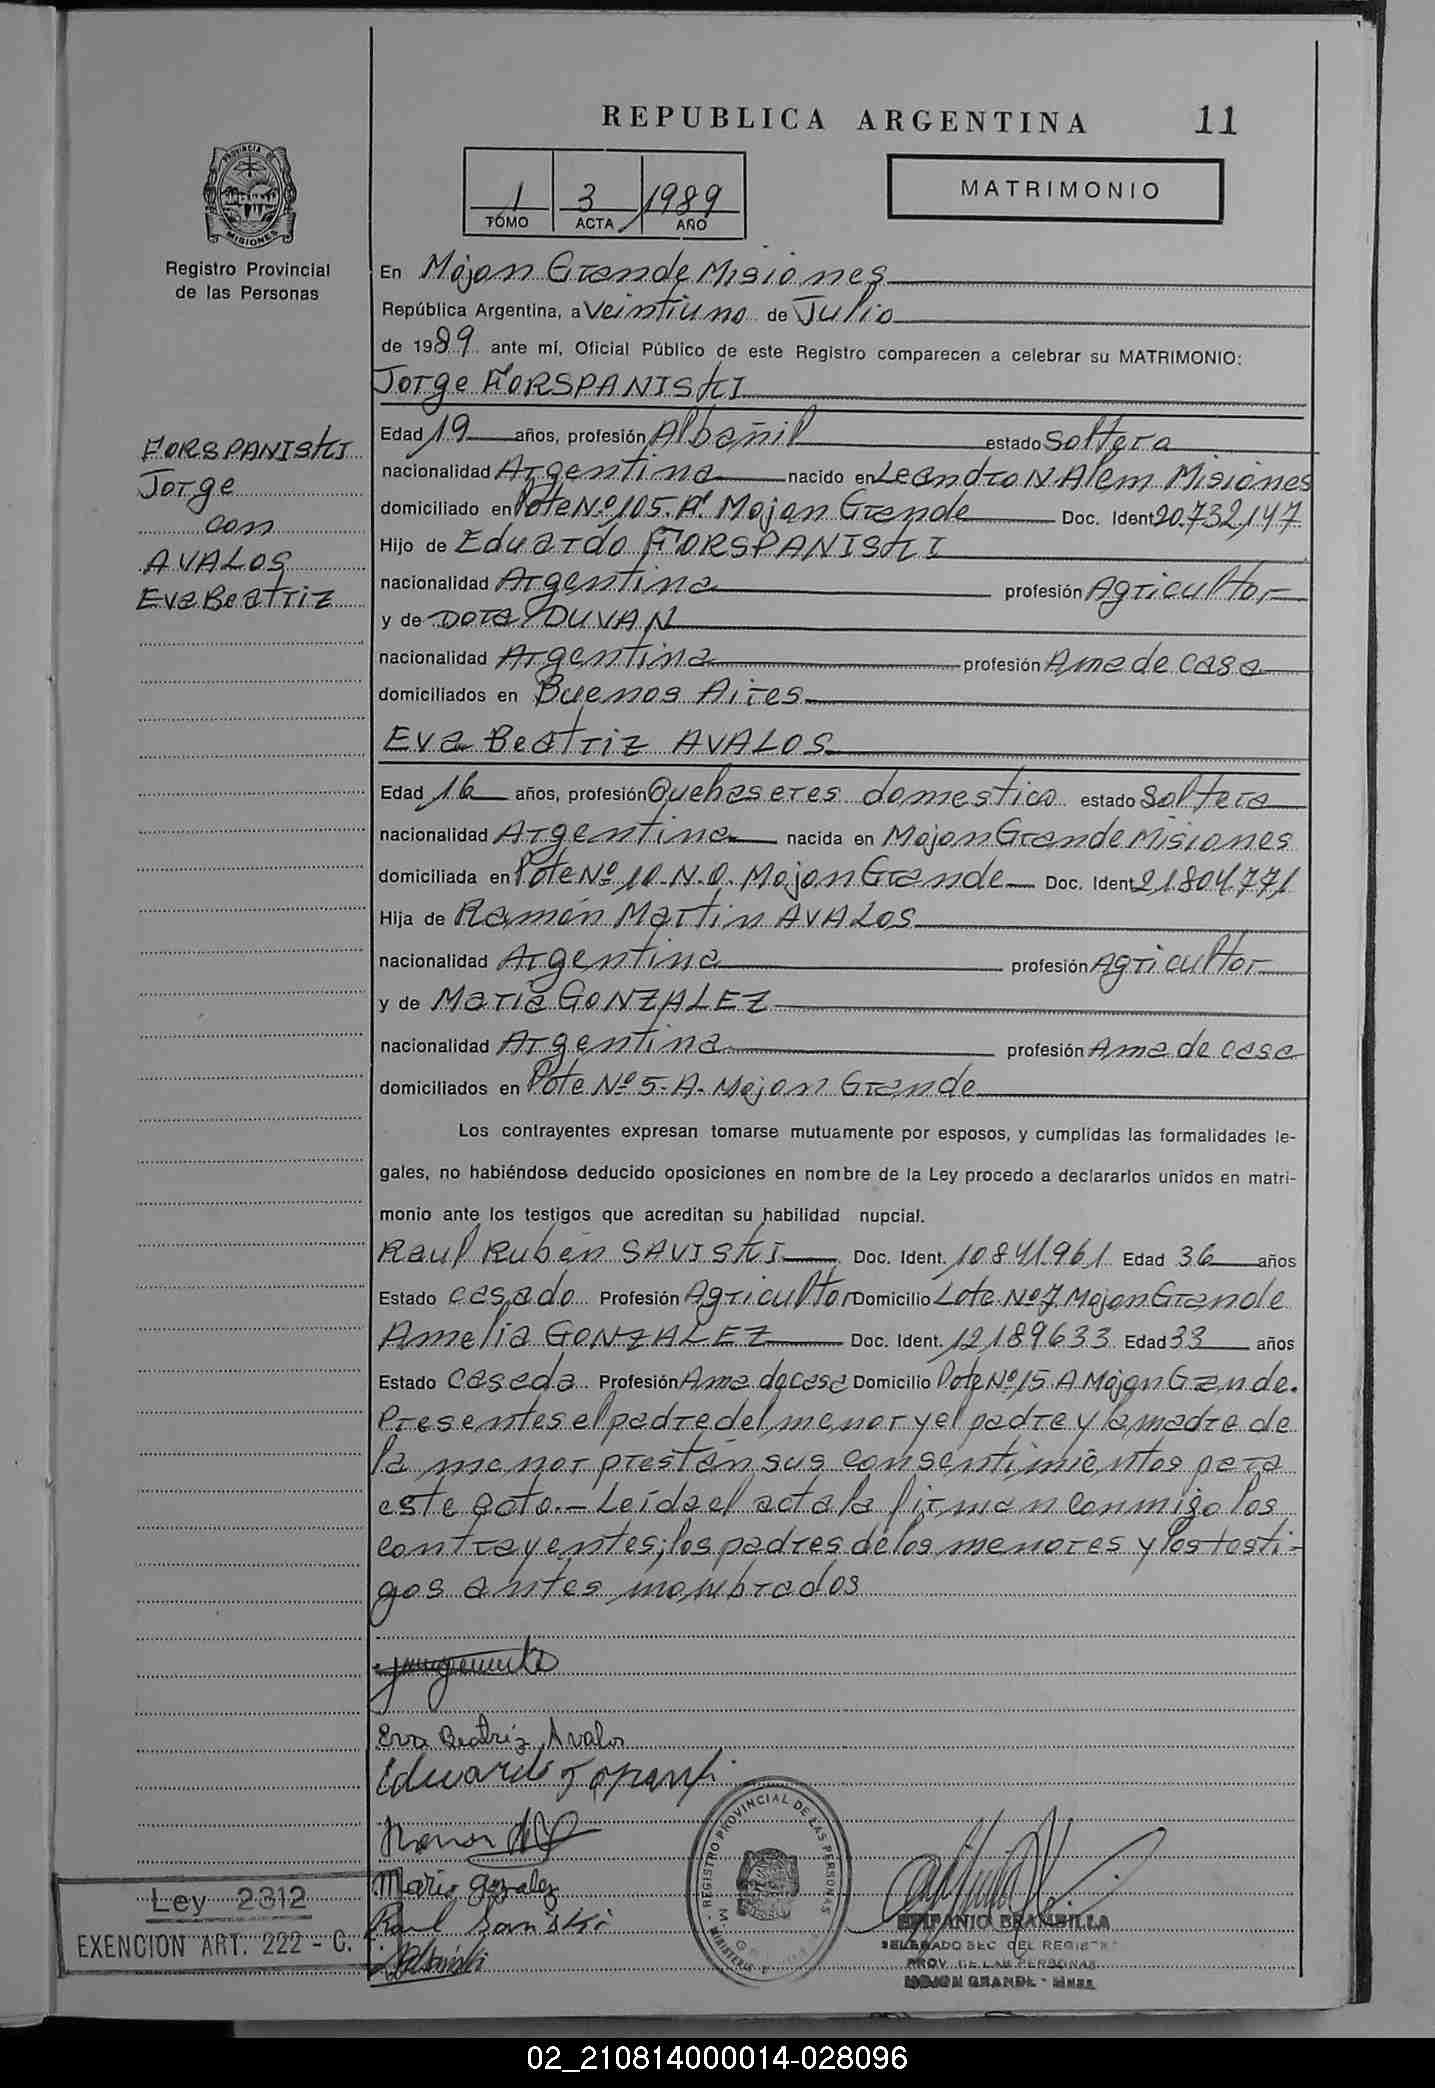 REPUBLICA ARGENTINA 11
PROVINCIA DE MISIONES
Registro Provincial
de las Personas
1 3 1989
TOMO ACTA AÑO
MATRIMONIO
En Mojon Grande Misiones
República Argentina, a Veintiuno de Julio
de 1989 ante mí, Oficial Público de este Registro comparecen a celebrar su MATRIMONIO:
Jorge FORSPANISKI
FORSPANISKI
Jorge
con
AVALOS
Eva Beatriz
Edad 19 años, profesión Albañil estado Soltera
nacionalidad Argentina nacido en Leandro N Alem Misiones
domiciliado en Lote Nº 105. A. Mojon Grande Doc. Ident 20.732.147
Hijo de Eduardo FORSPANISKI
nacionalidad Argentina profesión Agricultor
y de Dora DUVAN
nacionalidad Argentina profesión Ama de casa
domiciliados en Buenos Aires
Eva Beatriz AVALOS
Edad 16 años, profesión Quehaseres domestico estado Soltera
nacionalidad Argentina nacida en Mojon Grande Misiones
domiciliada en Lote Nº 10. N.O. Mojon Grande Doc. Ident 21804.771
Hija de Ramón Martin AVALOS
nacionalidad Argentina profesión Agricultor
y de Maria GONZALEZ
nacionalidad Argentina profesión Ama de casa
domiciliados en Lote Nº 5-A- Mojon Grande
Los contrayentes expresan tomarse mutuamente por esposos, y cumplidas las formalidades le-
gales, no habiéndose deducido oposiciones en nombre de la Ley procedo a declararlos unidos en matri-
monio ante los testigos que acreditan su habilidad nupcial.
Raul Rubén SAVISKI Doc. Ident. 10841.961 Edad 36 años
Estado casado Profesión Agricultor Domicilio Lote Nº 7 Mojon Grande
Amelia GONZALEZ Doc. Ident. 12189633 Edad 33 años
Estado casada Profesión Ama de casa Domicilio Lote Nº 15 A Mojon Grande.
Presentes el padre del menor y el padre y la madre de
la menor prestan sus consentimientos para
este acto.- Leída el acta la firman conmigo los
contrayentes; los padres de los menores y los testi-
gos antes nombrados
Eva Beatriz Avalos
Eduardo
Maria Gonzalez
Raul Saviski
REGISTRO PROVINCIAL DE LAS PERSONAS
Ley 2312
EXENCION ART. 222 - C.
EPIFANIO BRAMBILLA
DELEGADO SEC DEL REGISTRO
PROV. DE LAS PERSONAS
MOJON GRANDE - Mnes.
02_210814000014-028096